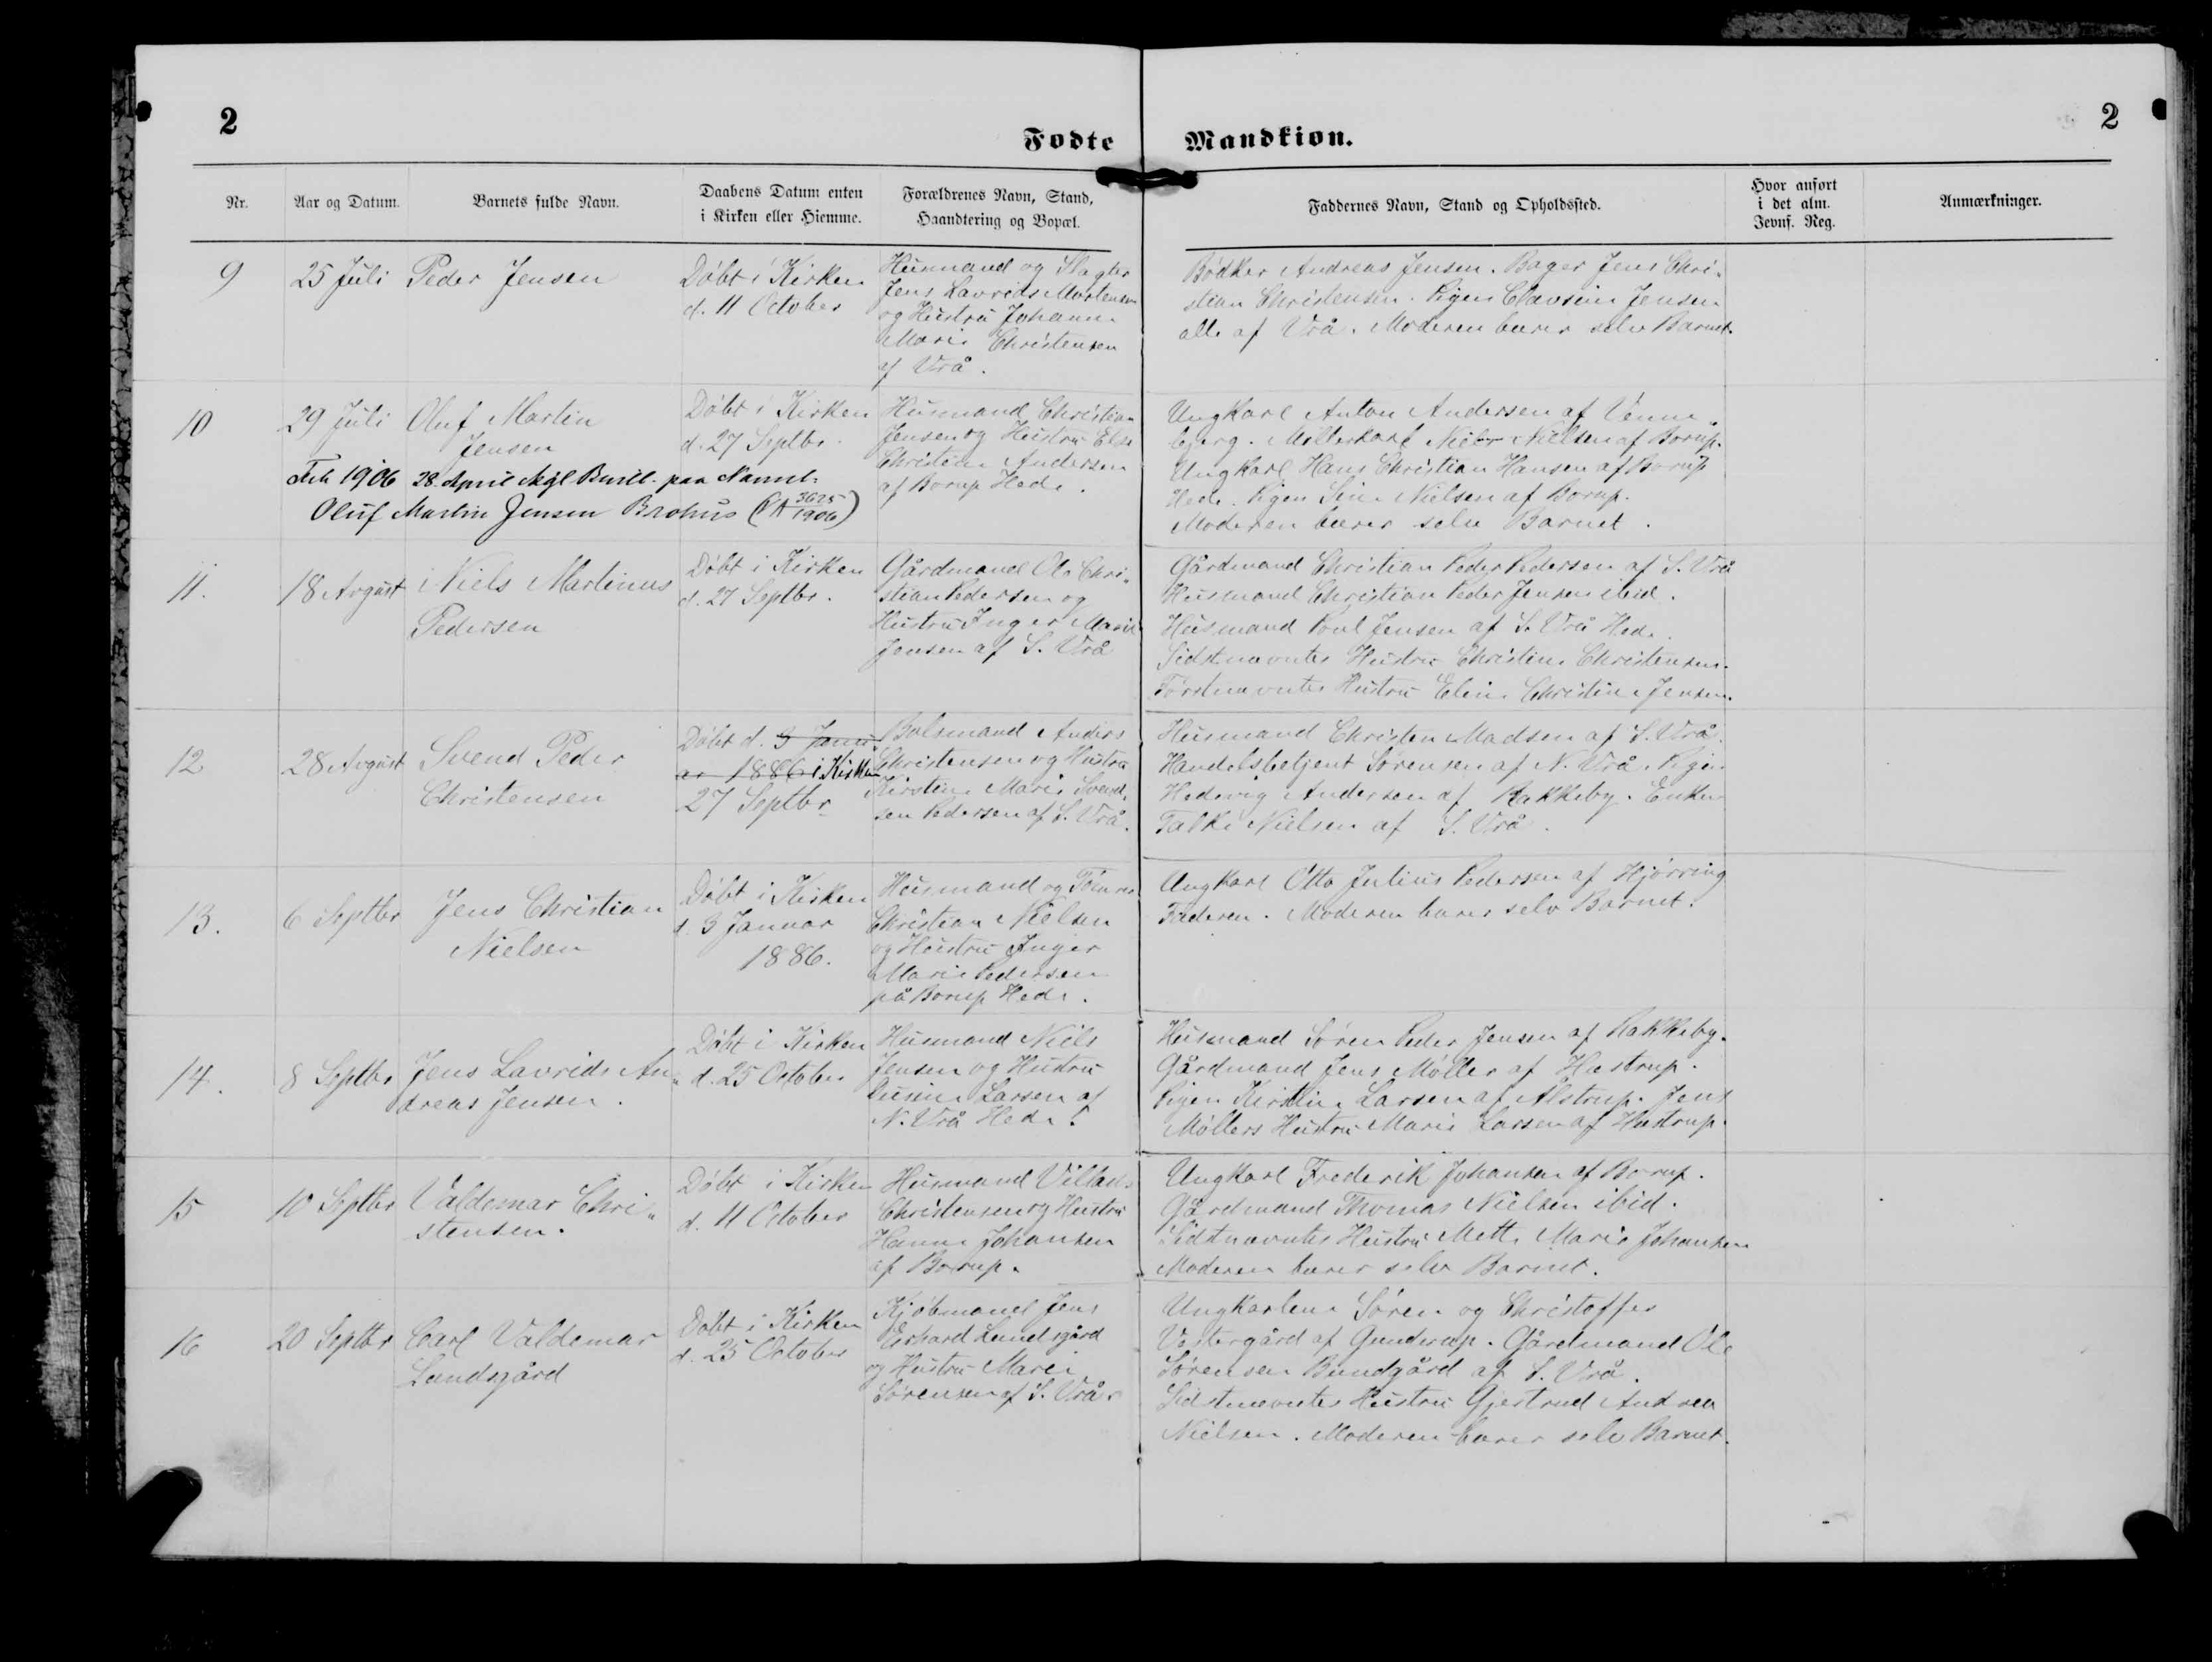 2
2
Fødte
Mandkiøn.
Nr.
Aar og Datum.
Barnets fulde Navn.
Daabens Datum enten
i Kirken eller Hiemme.
Forældrenes Navn, Stand,
Haandtering og Bopæl.
Faddernes Navn, Stand og Opholdssted.
Hvor anført
i det alm.
Jevnf. Reg.
Anmærkninger.
9
25 Juli
Peder Jensen
Døbt i Kirken
d. 11 October
Husmand og Slagter
Jens Lavrids Mortensen
og Hustru Johanne
Marie Christensen
af Vrå.
Bødker Andreas Jensen. Bager Jens Chri-
stian Christensen. Pigen Clavsine Jensen
alle af Vrå. Moderen bærer selv Barnet.
10
29 Juli
Oluf Martin
Jensen
28. April 1906 Bevill. paa Navnet
Oluf Martin Jensen Brohus (3625/1906)
Døbt i Kirken
d. 27 Septbr.
Husmand Christian
Jensen og Hustru Else
Christine Andersen
af Borup Hede.
Ungkarl Anton Andersen af Venne-
bjerg. Møllerkarl Niels Nielsen af Borup.
Ungkarl Hans Christian Hansen af Borup
Hede. Pigen Sine Nielsen af Borup.
Moderen bærer selv Barnet.
11.
18 Avgust
Niels Martinus
Pedersen
Døbt i Kirken
d. 27 Septbr.
Gårdmand Ole Chri-
stian Pedersen og
Hustru Inger Marie
Jensen af S. Vrå
Gårdmand Christian Peder Pedersen af S. Vrå
Husmand Christian Peder Jensen ibid.
Husmand Poul Jensen af S. Vrå Hede.
Sidstnævntes Hustru Christine Christensen.
Førstnævntes Hustru Eline Christine Jensen.
12
28 Avgust
Svend Peder
Christensen
Døbt d. 3 Janu-
ar 1886 i Kirken
27 Septbr
Bolsmand Anders
Christensen og Hustru
Kirstine Marie Svend-
sen Pedersen af S. Vrå.
Husmand Christen Madsen af S. Vrå.
Handelsbetjent Sørensen af N. Vrå. Pigen
Hedevig Andersen af Rakkeby. Enken
Nielsen af S. Vrå.
13.
6 Septbr
Jens Christian
Nielsen
Døbt i Kirken
d. 3 Januar
1886.
Husmand og Tømrer
Christian Nielsen
og Hustru Inger
Marie Pedersen
på Borup Hede.
Ungkarl Otto Julius Pedersen af Hjørring
Faderen. Moderen bærer selv Barnet.
14.
8 Septbr
Jens Lavrids An-
dreas Jensen.
Døbt i Kirken
d. 25 October
Husmand Niels
Jensen og Hustru
Larsen af
N. Vrå Hede.
Husmand Søren Peder Jensen af Rakkeby.
Gårdmand Jens Møller af Hæstrup.
Pigen Kirstine Larsen af Alstrup. Jens
Møllers Hustru Marie Larsen af Hæstrup.
15
10 Septbr
Valdemar Chri-
stensen.
Døbt i Kirken
d. 11 October
Husmand Villads
Christensen og Hustru
Hanne Johansen
af Borup.
Ungkarl Frederik Johansen af Borup.
Gårdmand Thomas Nielsen ibid.
Sidstnævntes Hustru Mette Marie Johansen
Moderen bærer selv Barnet.
16
20 Septbr
Carl Valdemar
Landsgård
Døbt i Kirken
d. 25 October
Kjøbmand Jens
Erhard Landsgård
og Hustru Marie
Sørensen af S. Vrå.
Ungkarlene Søren og Christoffer
Vestergård af Gunderup. Gårdmand Ole
Sørensen Bundgård af S. Vrå.
Sidstnævntes Hustru Gjertrud Andrea
Nielsen. Moderen bærer selv Barnet.